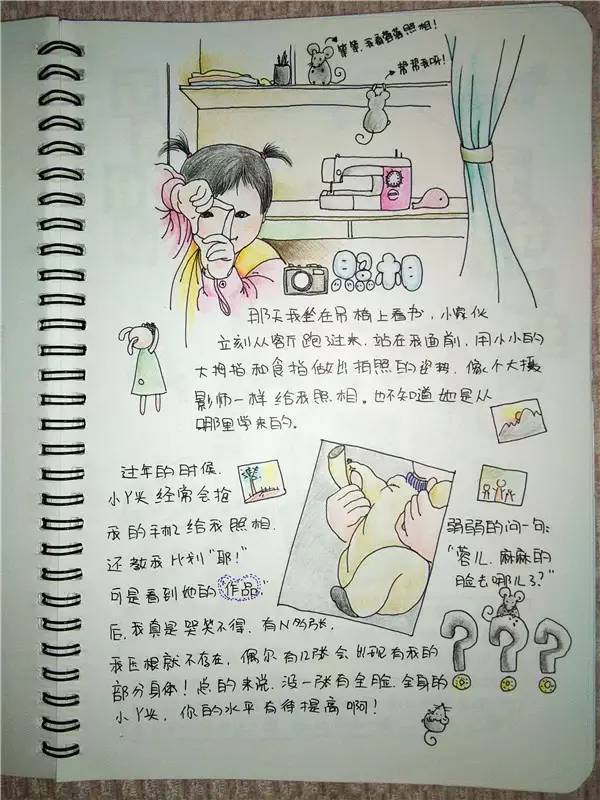 笨笨,我看着着照相!
帮帮我呀!
照相
那天我坐在吊椅上看书,小家伙
立刻从客厅跑过来,站在我面前,用小小的
大拇指和食指做出拍照的姿势,像个大摄
影师一样给我照相。也不知道她是从
哪里学来的。
过年的时候,
小丫头经常会抢
我的手机给我照相,
还教我比划"耶!"
可是看到她的"作品"
后,我真是哭笑不得,有N多张,
我压根就不存在,偶尔有几张会出现有我的
部分身体!总的来说,没一张有全脸、全身的
小丫头,你的水平有待提高啊!
弱弱的问一句:
"蓉儿,麻麻的
脸去哪儿了?"
???